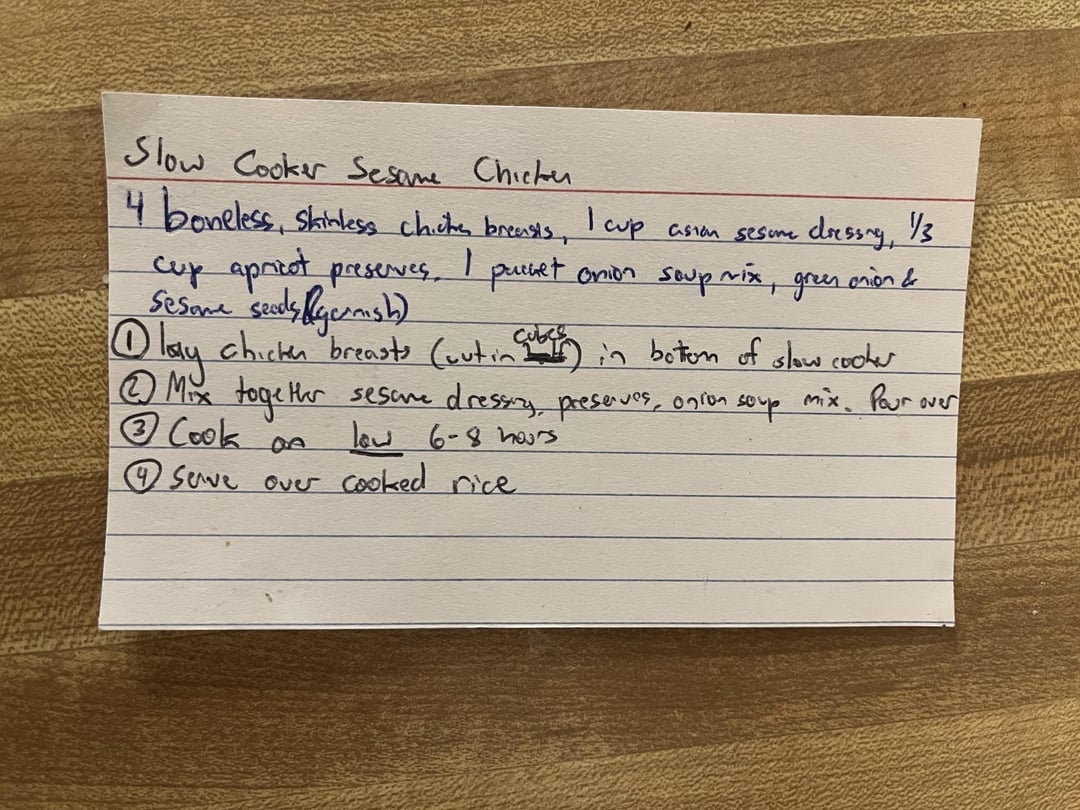 Slow Cooker Sesame Chicken
4 boneless, skinless chicken breasts, 1 cup asian sesame dressing, 1/3
cup apricot preserves, 1 packet onion soup mix, green onion &
sesame seeds (garnish)
① lay chicken breasts (cut in cubes) in bottom of slow cooker
② Mix together sesame dressing, preserves, onion soup mix. Pour over
③ Cook on low 6-8 hours
④ Serve over cooked rice